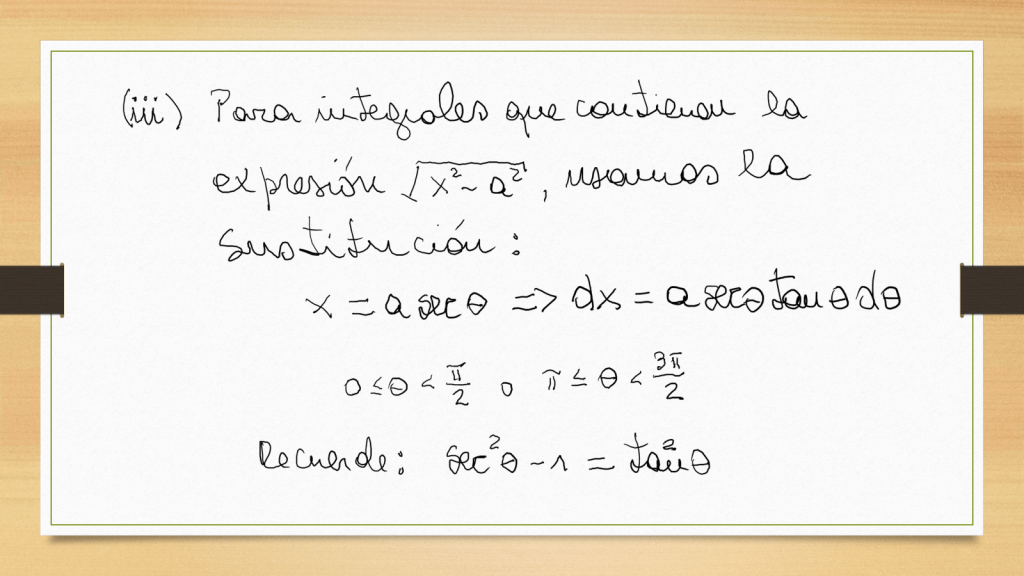 (iii) Para integrales que contienan la
expresión √(x²-a²), usamos la
sustitución:
x = a sec θ => dx = a sec θ tan θ dθ
0 ≤ θ < π/2 o π ≤ θ < 3π/2
Recuerde: sec²θ - 1 = tan²θ